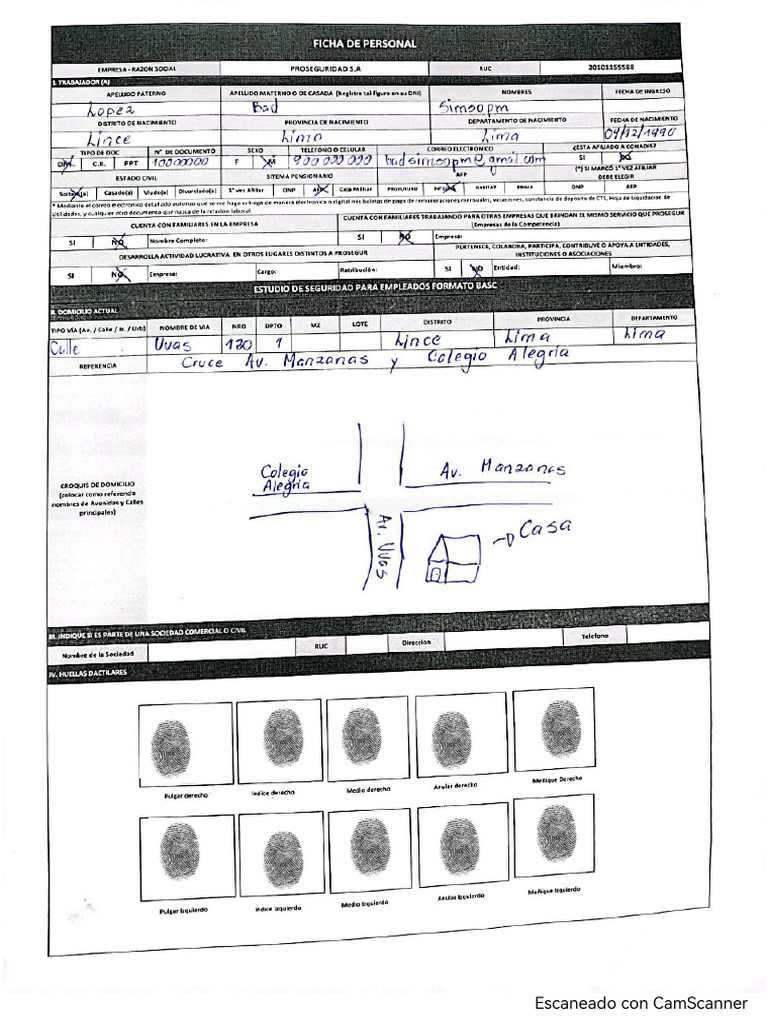 FICHA DE PERSONAL
EMPRESA - RAZON SOCIAL PROSEGURIDAD S.A RUC 20101155588
I. TRABAJADOR (A)
APELLIDO PATERNO APELLIDO MATERNO O DE CASADA (Registre tal figura en su DNI) NOMBRES FECHA DE INGRESO
Lopez Bad Simsopm
DISTRITO DE NACIMIENTO PROVINCIA DE NACIMIENTO DEPARTAMENTO DE NACIMIENTO FECHA DE NACIMIENTO
Lince Lima Lima 04/12/1990
TIPO DE DOC N° DE DOCUMENTO SEXO TELEFONO O CELULAR CORREO ELECTRONICO ¿ESTA AFILIADO A CONADIS?
DNI C.E. PPT 10000000 F M 900 000 000 badsimsopm@gmail.com SI NO
ESTADO CIVIL SITEMA PENSIONARIO AFP (*) SI MARCÓ 1° VEZ AFILIAR DEBE ELEGIR
Soltero(a) Casado(a) Viudo(a) Divorciado(a) 1° vez Afiliar ONP AFP Caja Militar PROFUTURO INTEGRA HABITAT PRIMA ONP AFP
* Mediante el correo electronico detallado autorizo que se me haga entrega de manera electronica o digital mis boletas de pago de remuneraciones mensuales, vacaciones, constancia de deposito de CTS, Hoja de Liquidacion de
Utilidades, y cualquier otro documento que nazca de la relacion laboral.
CUENTA CON FAMILIARES EN LA EMPRESA CUENTA CON FAMILIARES TRABAJANDO PARA OTRAS EMPRESAS QUE BRINDAN EL MISMO SERVICIO QUE PROSEGUR
(Empresas de la Competencia)
SI NO Nombre Completo: SI NO Empresa:
DESARROLLA ACTIVIDAD LUCRATIVA EN OTROS LUGARES DISTINTOS A PROSEGUR PERTENECE, COLABORA, PARTICIPA, CONTRIBUYE O APOYA A ENTIDADES,
INSTITUCIONES O ASOCIACIONES
SI NO Empresa: Cargo: Retribución: SI NO Entidad: Miembro:
ESTUDIO DE SEGURIDAD PARA EMPLEADOS FORMATO BASC
II. DOMICILIO ACTUAL
TIPO VÍA (Av. / Calle / Jr. / Urb) NOMBRE DE VIA NRO DPTO MZ LOTE DISTRITO PROVINCIA DEPARTAMENTO
Calle Uvas 120 1 Lince Lima Lima
REFERENCIA Cruce Av. Manzanas y Colegio Alegria
CROQUIS DE DOMICILIO
(colocar como referencia
nombres de Avenidas y Calles
principales)
Colegio
Alegria
Av. Manzanas
Av. Uvas
Casa
III. INDIQUE SI ES PARTE DE UNA SOCIEDAD COMERCIAL O CIVIL
Nombre de la Sociedad RUC Direccion Telefono
IV. HUELLAS DACTILARES
Pulgar derecho Indice derecho Medio derecho Anular derecho Meñique Derecho
Pulgar Izquierdo Indice Izquierdo Medio Izquierdo Anular Izquierdo Meñique Izquierdo
Escaneado con CamScanner